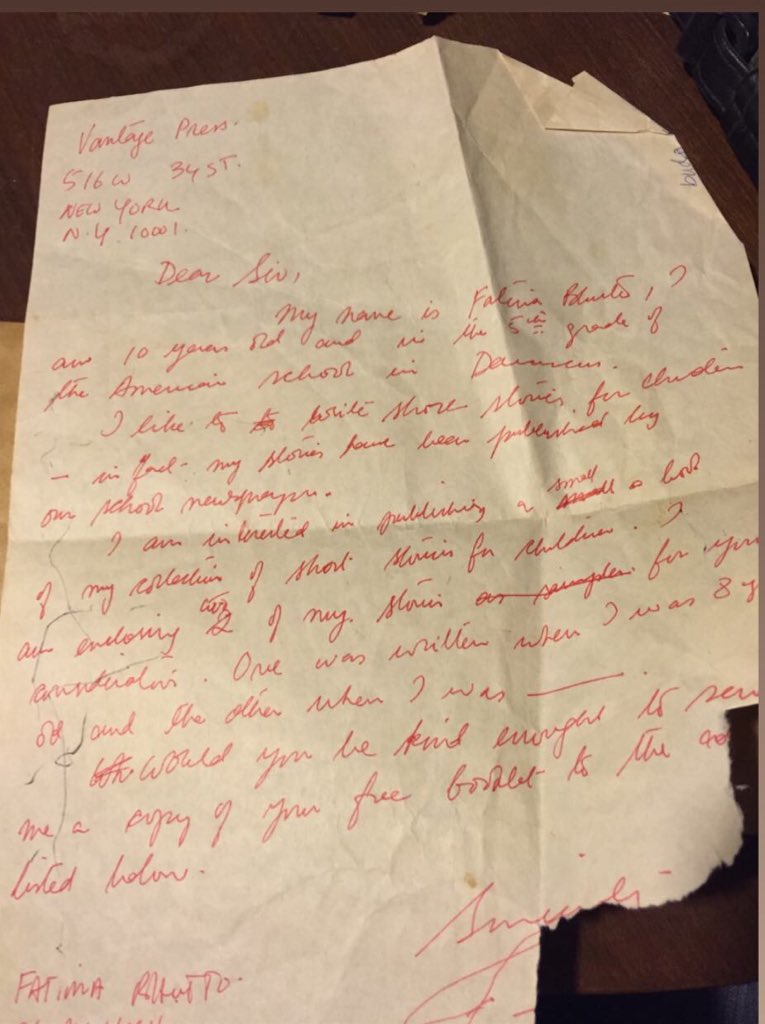 Vantage Press.
516 W 34 ST.
NEW YORK
N.Y. 10001.
Dear Sir,
My name is Fatima Bhutto, I
am 10 years old and in the 5th grade of
the American school in Damascus.
I like to to write short stories for children
– in fact my stories have been published by
our school newspaper.
I am interested in publishing a small small a book
of my collection of short stories for children. I
am enclosing two 2 of my stories as samples for your
consideration. One was written when I was 8 y
old and the other when I was ———.
Would you be kind enought to sen
me a copy of your free booklet to the ad
listed below.
Sincerely
FATIMA BHUTTO.